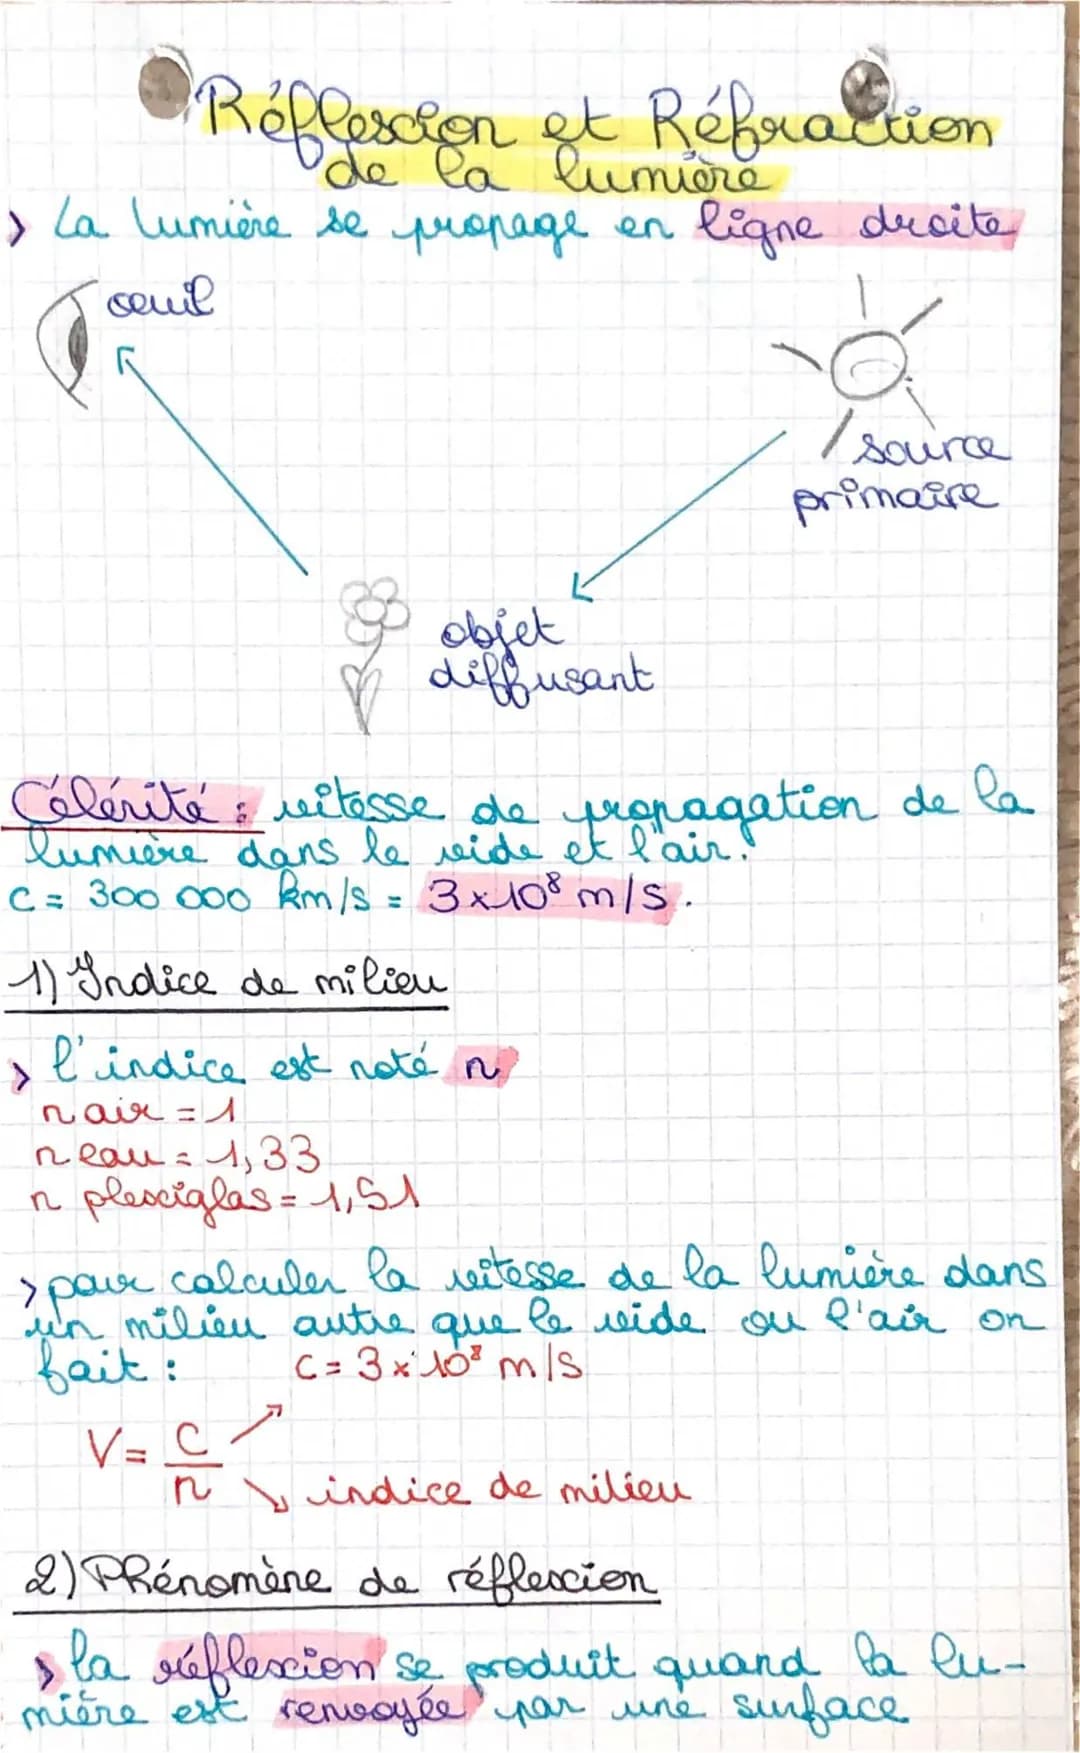 Réflexion et Réfraction
de la lumière
> La lumière se propage en ligne droite
oeuil
source
primaire
objet
diffusant
Célérité : vitesse de propagation de la
lumière dans le vide et l'air.
c = 300 000 km/s = 3×10⁸ m/s.
1) Indice de milieu
> l'indice est noté n
n air = 1
n eau = 1,33
n plexiglas = 1,51
> pour calculer la vitesse de la lumière dans
un milieu autre que le vide ou l'air on
fait :
C = 3×10⁸ m/s
V = C/n
indice de milieu
2) Phénomène de réflexion
> la réflexion se produit quand la lu-
mière est renvoyée par une surface